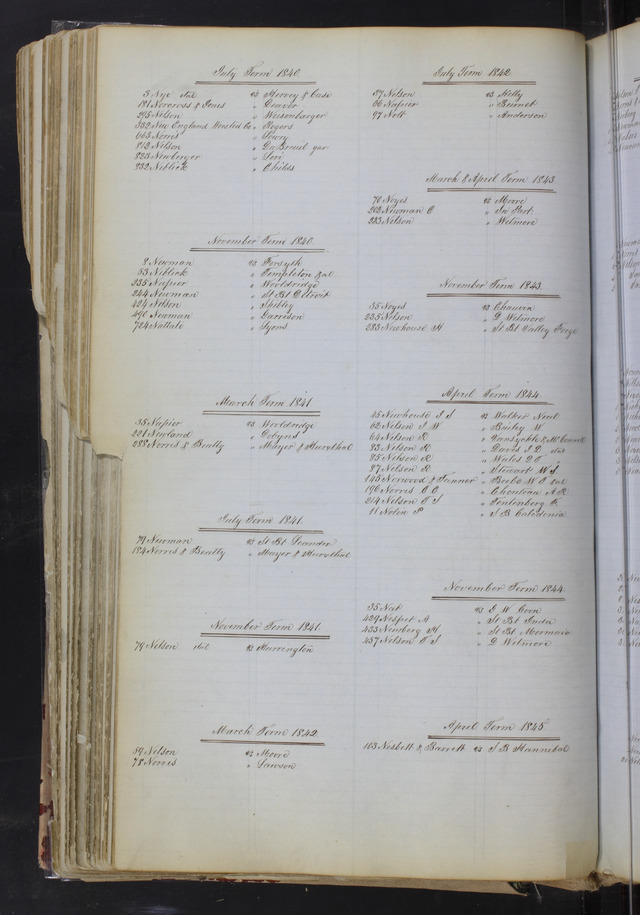 July Term 1840.
3 Nye et al vs Hervey & Case
181 Norcross & Jones " Deaver
295 Nelson " Weisenbarger
332 New England Hmsted Co " Rogers
663 Norris " Lowry
812 Nelson " DuBreuil gar
823 Newberger " Levi
832 Niblick " Childs
November Term 1840.
8 Newman vs Forsyth
53 Niblick " Templeton & al
235 Napier " Wooldridge
244 Newman " St Bt Detroit
424 Nelson " Shibley
490 Newman " Garrison
724 Nattale " Lyons
March Term 1841
35 Napier vs Wooldridge
221 Newland " Dobyns
288 Norris & Beatty " Mayer & Hursthal
July Term 1841.
79 Newman vs St Bt Leander
184 Norris & Beatty " Mayer & Hursthal
November Term 1841.
79 Nelson et al vs Harrington
March Term 1842.
59 Nelson vs Moore
78 Norris " Lawson
July Term 1842
37 Nelson vs Kelly
66 Napier " Burnet
97 Nolt " Anderson
March & April Term 1843
70 Noyes vs Moore
202 Newman C " In Part.
233 Nelson " Wetmore
November Term 1843.
55 Noyes vs Chauvin
235 Nelson " D Wetmore
283 Newhouse H " St Bt Valley Forge
April Term 1844.
45 Newhouse I S vs Walker Noel
62 Nelson I W " Bailey W
64 Nelson R " Vansyckle & McConnell
83 Nelson R " Davis J D et al
85 Nelson R " Wales D T
87 Nelson R " Stewart W S
145 Norwood & Tanner " Beebe W O et al
196 Norris C C " Chouteau A R
214 Nelson T S " Tentenberg K
11 Nolen P " S B Caledonia
November Term 1844.
35 Nat vs D W Coon
429 Nespet A " St Bt Tuda
433 Newberg H " St Bt Mermaid
437 Nelson T S " D Wetmore
April Term 1845
103 Nesbett & Barrett vs S B Hannibal